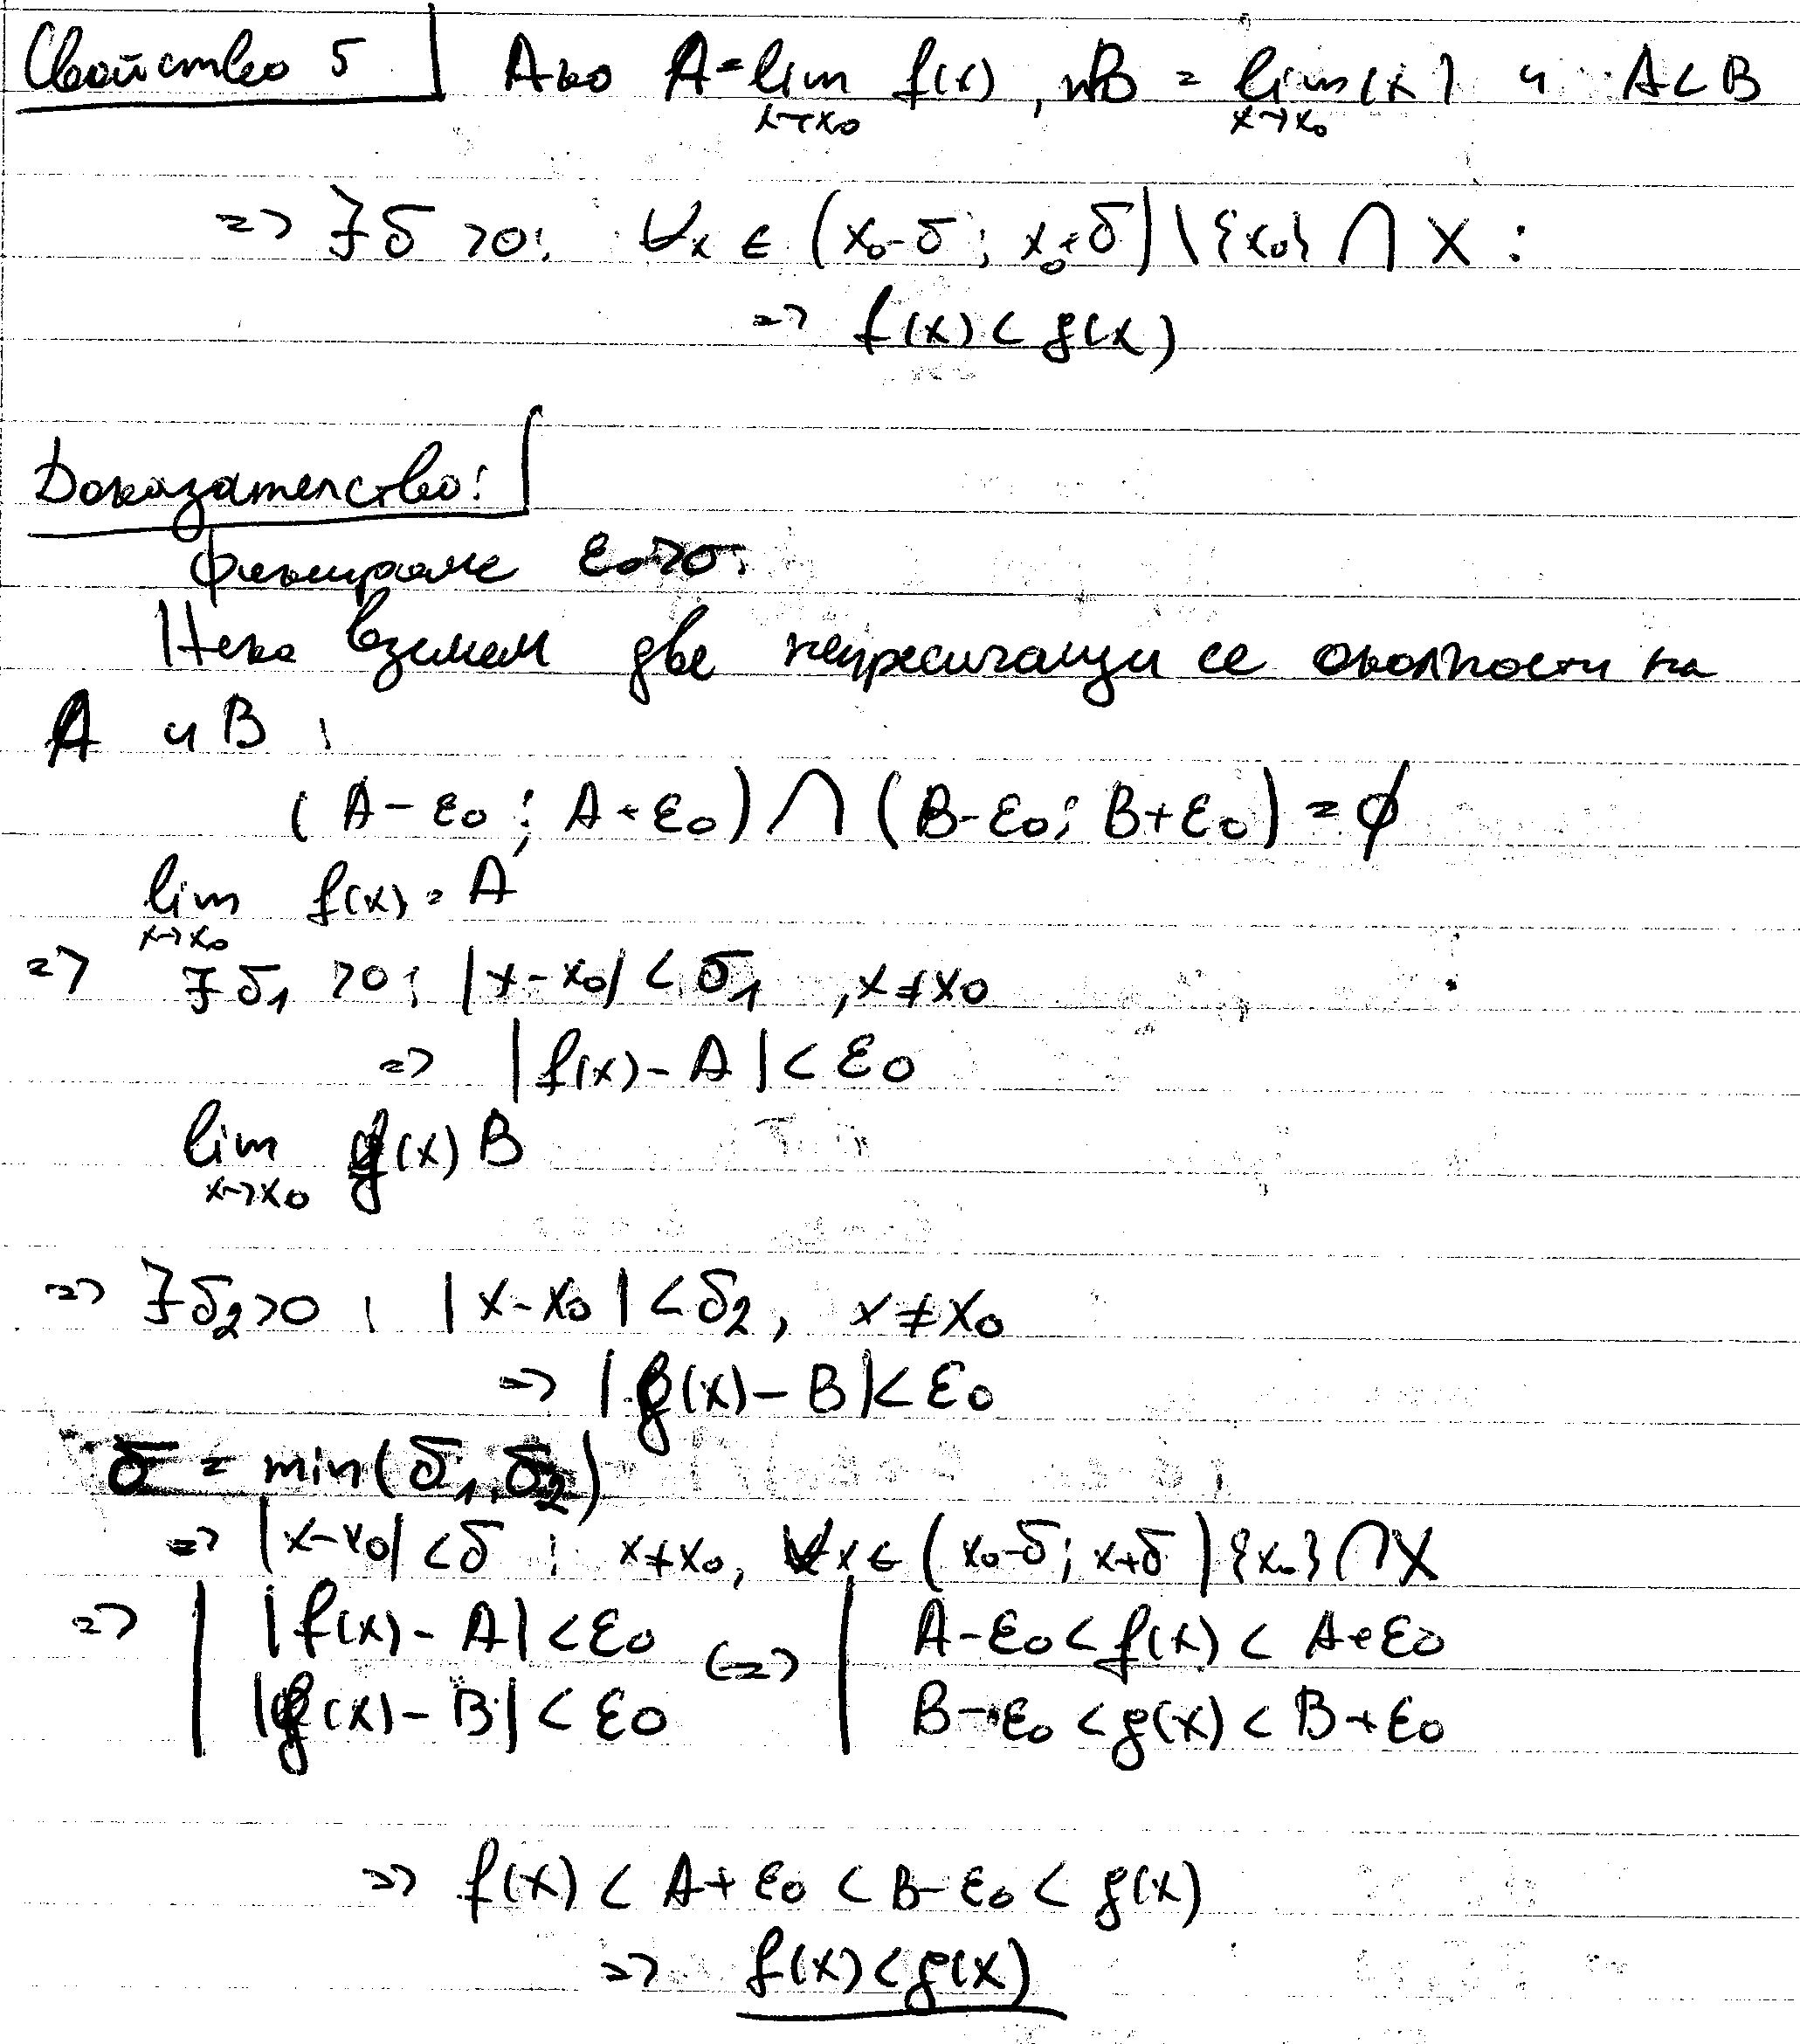 Свойство 5 | Ако A = lim f(x), B = lim (x) и A < B
x→x₀ x→x₀
=> ∃ δ > 0: ∀x ∈ (x₀-δ; x₀+δ) \ {x₀} ∩ X :
=> f(x) < g(x)
Доказателство:
Фиксираме ε₀>0.
Нека вземем две непресичащи се околности на
A и B :
(A - ε₀; A + ε₀) ∩ (B - ε₀; B + ε₀) = ∅
lim f(x) = A
x→x₀
=> ∃ δ₁ > 0: |x - x₀| < δ₁, x ≠ x₀
=> |f(x) - A| < ε₀
lim g(x) B
x→x₀
=> ∃ δ₂ > 0 : |x - x₀| < δ₂, x ≠ x₀
=> |g(x) - B| < ε₀
δ = min(δ₁, δ₂)
=> |x - x₀| < δ : x ≠ x₀, ∀x ∈ (x₀-δ; x+δ) {x₀} ∩ X
=> | |f(x) - A| < ε₀ <=> | A - ε₀ < f(x) < A + ε₀
| |g(x) - B| < ε₀ | B - ε₀ < g(x) < B + ε₀
=> f(x) < A + ε₀ < B - ε₀ < g(x)
=> f(x) < g(x)